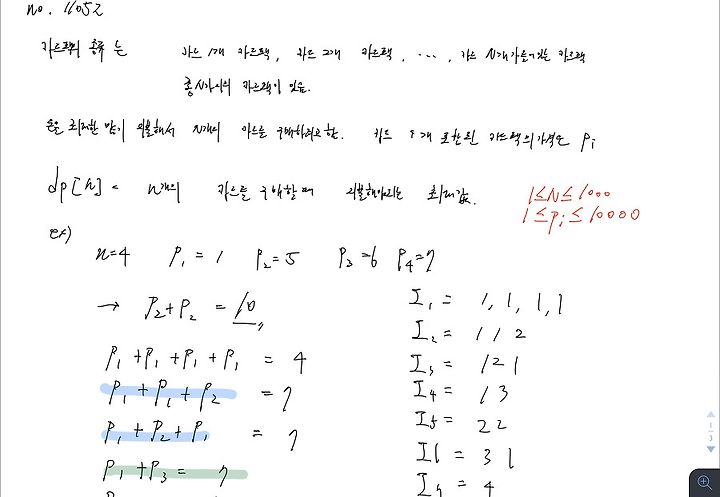 no. 11052
카드팩의 종류는 카드 1개 카드팩, 카드 2개 카드팩, ..., 카드 N개가 들어있는 카드팩
총 N가지의 카드팩이 있음.
돈을 최대한 많이 지불해서 N개의 카드를 구매하려고 함. 카드 i개 포함된 카드팩의 가격은 Pi
dp[n] = n개의 카드를 구매할 때 지불해야하는 최대값.
1≤N≤1000
1≤Pi≤10000
ex)
n=4 P1 = 1 P2 = 5 P3 =6 P4=7
→ P2+P2 = 10
P1 +P1 +P1 +P1 = 4
P1 + P1 + P2 = 7
P1 + P2 + P1 = 7
P1 + P3 = 7
I1 = 1, 1, 1, 1
I2 = 1 1 2
I3 = 1 2 1
I4 = 1 3
I5 = 2 2
I6 = 3 1
= 4
1
3